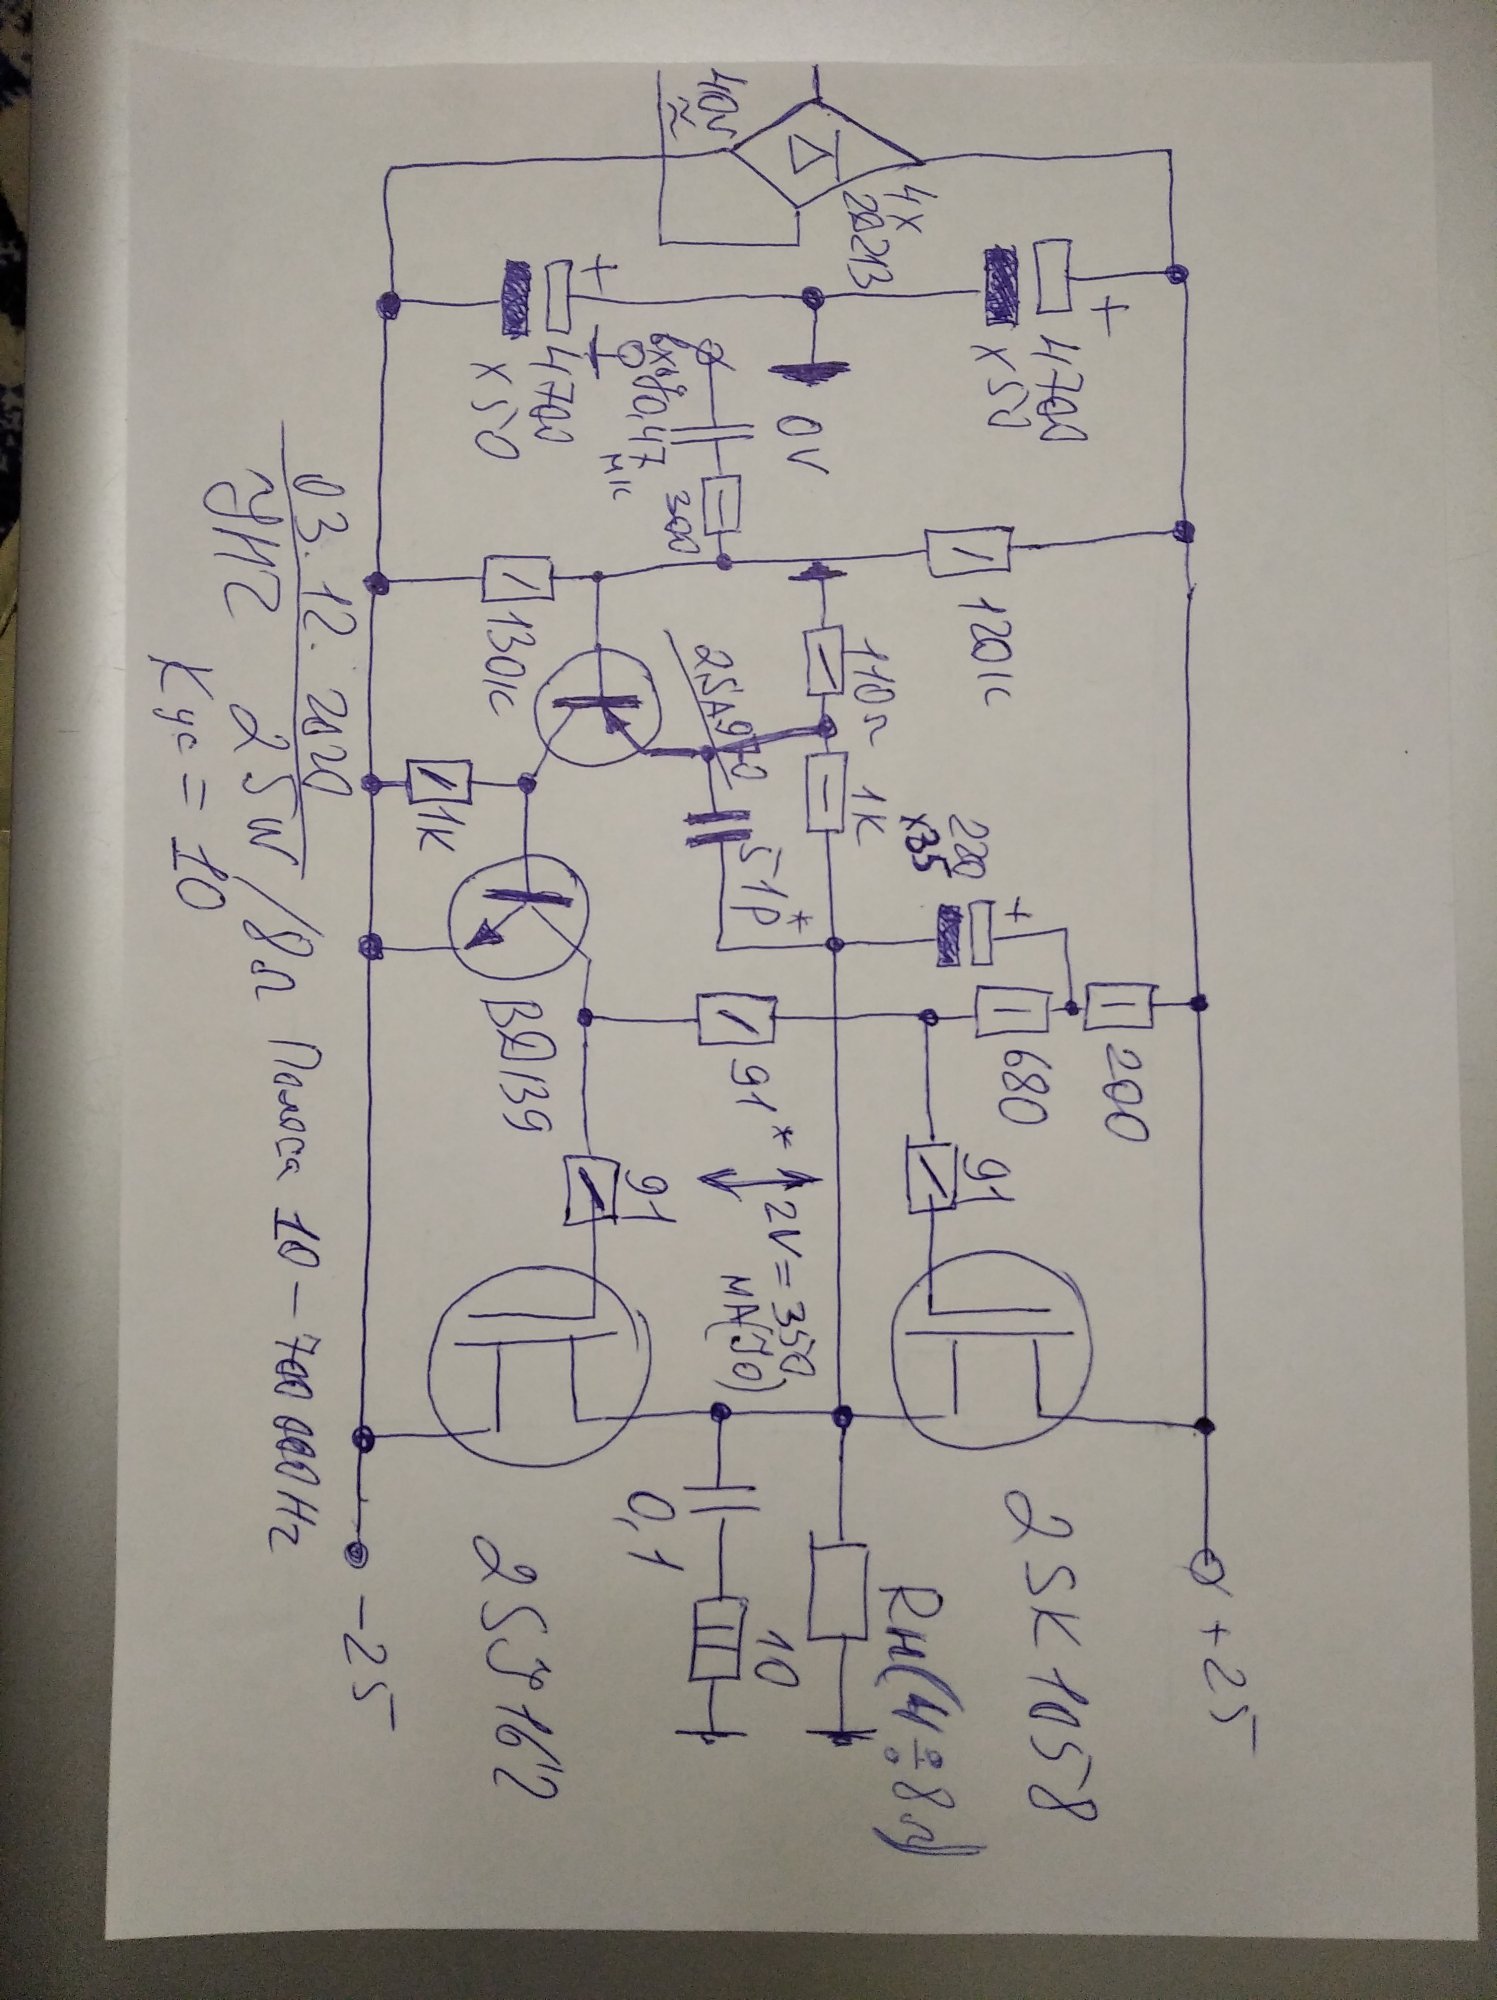 40V
≃
4x
2Д213
+
4700
x50
+
4700
x50
0V
Вход
0,47
мк
300
120к
130к
110Ω
1к
2SA970
51p*
220
x35
+
1к
BD139
91*
680
200
91
91
2V = 350
мА(J0)
2SK1058
2SJ162
0,1
10
Rн(4÷8Ω)
+25
-25
03.12.2020
УНЧ 25W/8Ω Полоса 10-700 000Hz
Кус = 10